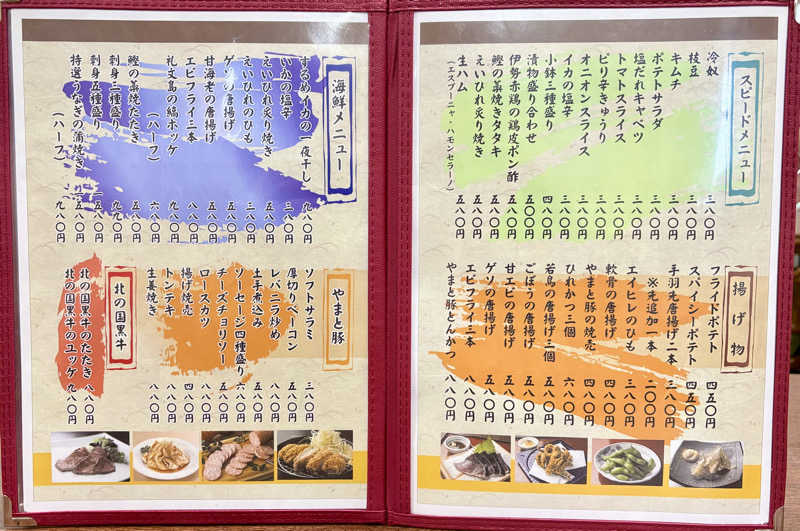 スピードメニュー
冷奴 三八〇円
枝豆 三八〇円
キムチ 三八〇円
ポテトサラダ 三八〇円
塩だれキャベツ 三八〇円
トマトスライス 三八〇円
ピリ辛きゅうり 三八〇円
オニオンスライス 三八〇円
イカの塩辛 三八〇円
小鉢三種盛り 四八〇円
漬物盛り合わせ 五〇〇円
伊勢赤鶏の鶏皮ポン酢 五八〇円
鰹の藁焼きタタキ 五八〇円
えいひれ炙り焼き 五八〇円
生ハム 五八〇円
(エスプーニャ・ハモンセラーノ)
揚げ物
フライドポテト 四五〇円
スパイシーポテト 四五〇円
手羽先唐揚げ二本 三八〇円
※先追加一本 二〇〇円
エイヒレのひも 三八〇円
軟骨の唐揚げ 四八〇円
やまと豚の焼売 四八〇円
ひれかつ三個 六八〇円
若鳥の唐揚げ三個 五八〇円
ごぼうの唐揚げ 五八〇円
甘エビの唐揚げ 五八〇円
ゲソの唐揚げ 五八〇円
エビフライ三本 八八〇円
やまと豚とんかつ 八八〇円
海鮮メニュー
するめイカの一夜干し 九八〇円
いかの塩辛 三八〇円
えいひれ炙り焼き 五八〇円
えいひれのひも 三八〇円
ゲソの唐揚げ 五八〇円
甘海老の唐揚げ 五八〇円
エビフライ三本 八八〇円
礼文島の縞ホッケ 九八〇円
(ハーフ) 六八〇円
鰹の藁焼たたき 五八〇円
刺身三種盛り 九九〇円
刺身五種盛り 一五八〇円
特選うなぎの蒲焼き 一五八〇円
(ハーフ) 九八〇円
やまと豚
ソフトサラミ 三八〇円
厚切りベーコン 五八〇円
レバニラ炒め 八八〇円
土手煮込み 五八〇円
ソーセージ四種盛り 六八〇円
チーズチョリソー 五八〇円
ロースカツ 八八〇円
揚げ焼売 四八〇円
トンテキ 八八〇円
生姜焼き 八八〇円
北の国黒牛
北の国黒牛のたたき 八八〇円
北の国黒牛のユッケ 九八〇円